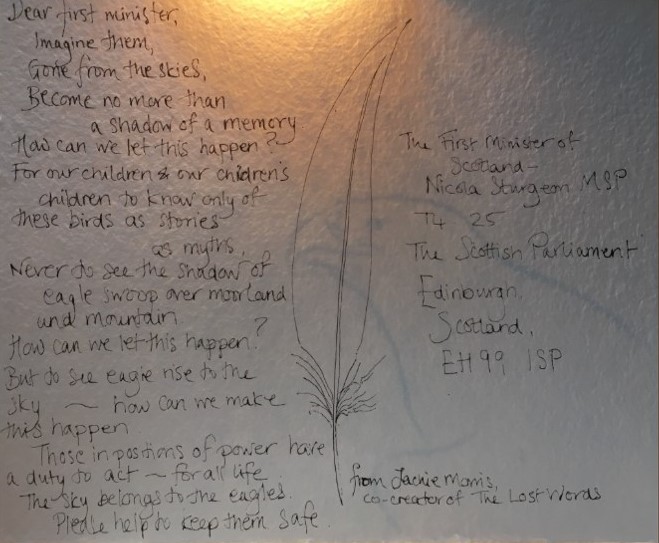 Dear first minister,
Imagine them,
Gone from the skies,
Become no more than
a shadow of a memory
How can we let this happen?
For our children & our chidren's
children to know only of
these birds as stories
as myths.
Never to see the shadow of
eagle swoop over moorland
and mountain.
How can we let this happen?
But to see eagle rise to the
sky ~ how can we make
this happen
Those in postions of power have
a duty to act ~ for all life.
The sky belongs to the eagles.
Please help to keep them safe.
The First Minister of
Scotland -
Nicola Sturgeon MSP
T4 25
The Scottish Parliament
Edinburgh,
Scotland,
EH99 1SP
from Jackie Morris,
co-creator of The Lost Words